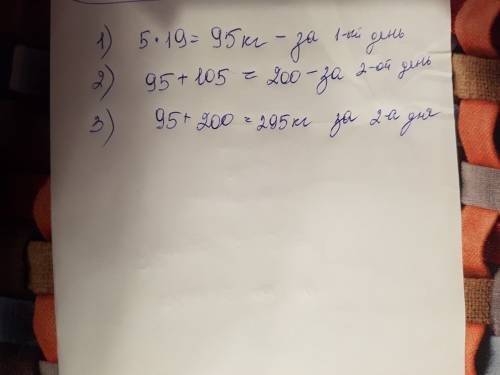 1) 5 · 19 = 95 кг – за 1-ый день
2) 95 + 105 = 200 – за 2-ой день
3) 95 + 200 = 295 кг за 2-а дня